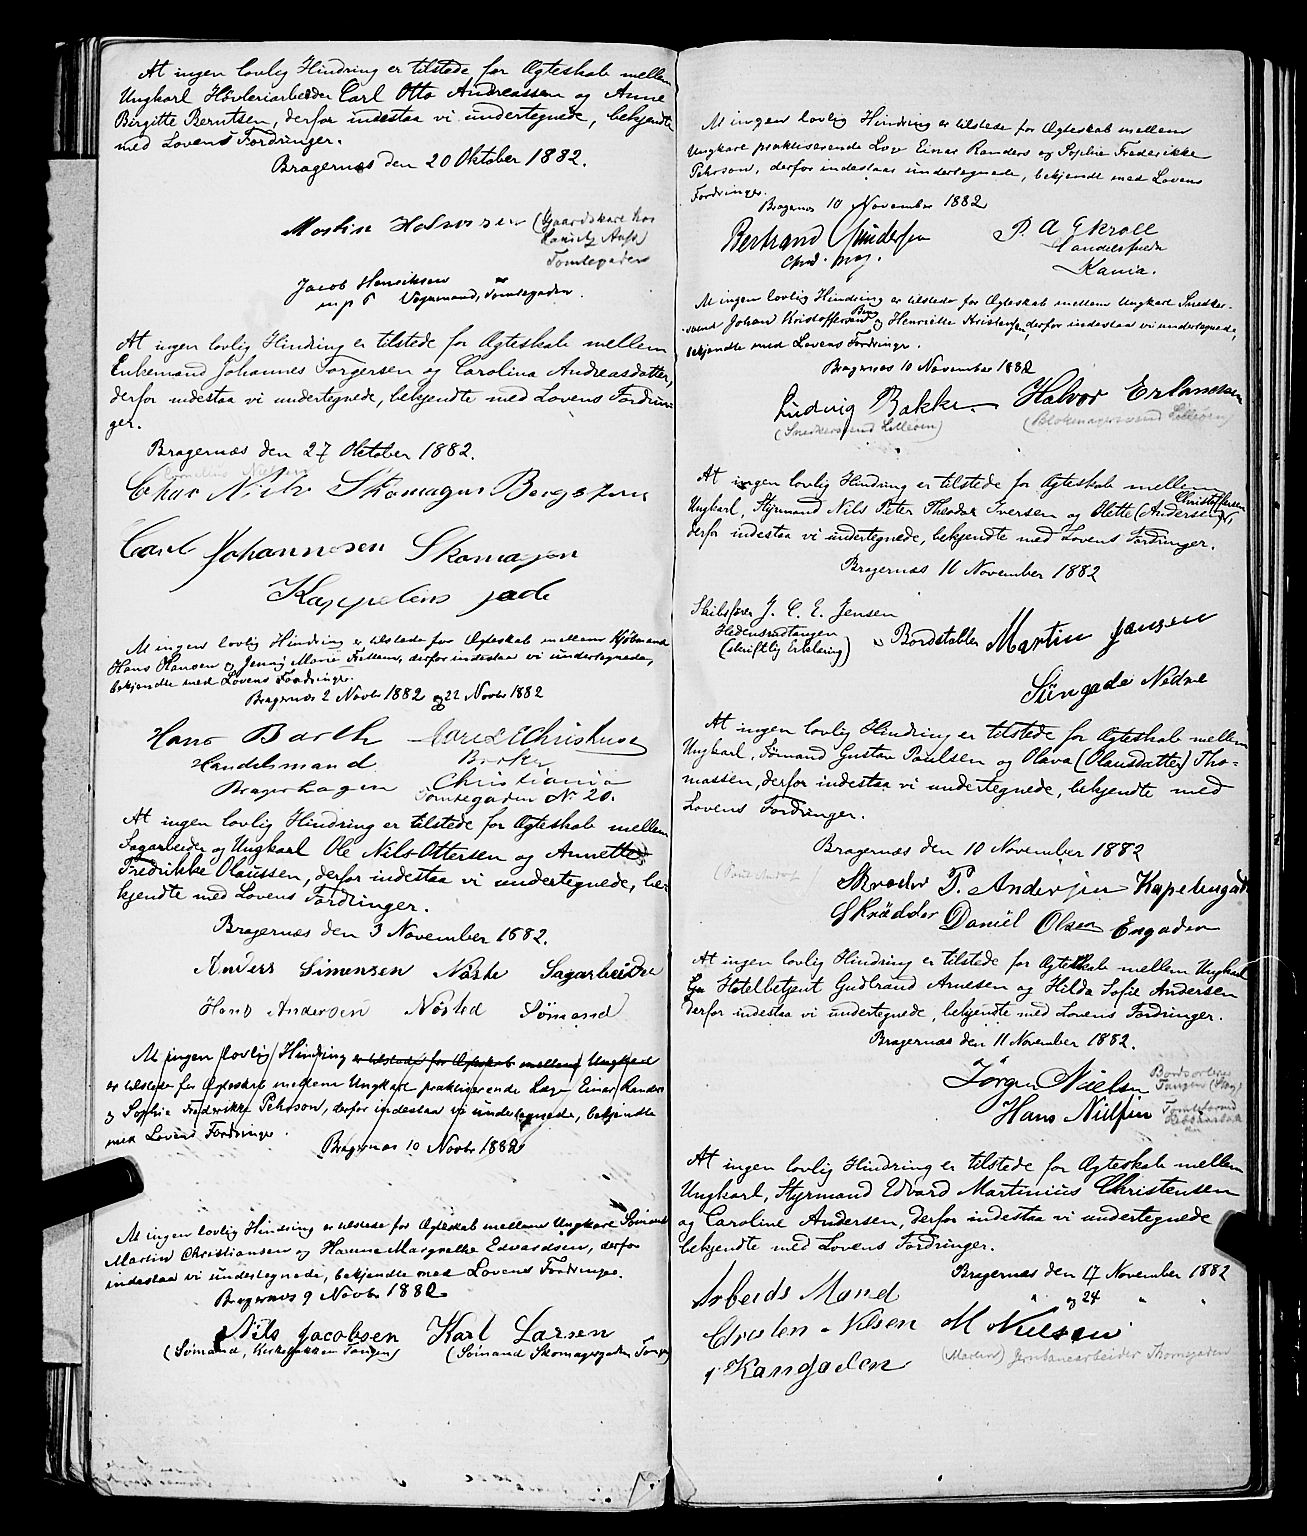 At ingen lovlig Hindring er tilstede for Ægteskab mellem
Ungkarl Høvleriarbeider Carl Otto Andreassen og Anne
Birgitte Berntsen, derfor indestaa vi undertegnede, bekjendte
med Lovens Fordringer.
Bragernæs den 20 Oktober 1882.
Martin Halvorsen (Gaardskarl hos
Tomtegaden
Jacob Henriksen
m p P Vognmand, Tomtegaden.
At ingen lovlig Hindring er tilstede for Ægteskab mellem
Enkemand Johannes Torgersen og Carolina Andreasdatter,
derfor indestaa vi undertegnede, bekjendte med Lovens Fordrin-
ger.
Bragernæs den 27 Oktober 1882.
Cornelius Nielsen
Nils Skomager Bergsten
Carl Johannesen Skomager
Kappelens gade
At ingen lovlig Hindring er tilstede for Ægteskab mellem Kjøbmand
Hans Hansen og Jenny Marie Frellsen, derfor indestaa vi undertegnede,
bekjendte med Lovens Fordringer.
Bragernæs 2 Novbr 1882 og 22 Novbr 1882
Hans Barth
Handelsmand Christiania
Bragerhagen Tomtegaden No 20.
At ingen lovlig Hindring er tilstede for Ægteskab mellem
Sagarbeider og Ungkarl Ole Nils Ottersen og Annette
Fredrikke Olaussen, derfor indestaa vi undertegnede, be-
kjendte med Lovens Fordringer.
Bragernæs den 3 November 1882.
Anders Simensen Nøste Sagarbeider
Hans Andersen Nøsted Sømand
At ingen lovlig Hindring er tilstede for Ægteskab mellem Ungkarl
er tilstede for Ægteskab mellem Ungkarl praktiserende Læge Einar Randers
og Sophie Frederikke Pehrson, derfor indestaa vi undertegnede, bekjendte
med Lovens Fordringer.
Bragernæs 10 Novbr 1882
At ingen lovlig Hindring er tilstede for Ægteskab mellem Ungkarl Sømand
Martin Christiansen og Hanna Margrethe Edvardsen, derfor
indestaa vi undertegnede, bekjendte med Lovens Fordringer.
Bragernæs 9 Novbr 1882.
Nils Jacobsen Karl Larsen
(Sømand, Kirkebakken Tangen) (Sømand Skomagergaden Tangen)
At ingen lovlig Hindring er tilstede for Ægteskab mellem
Ungkarl praktiserende Læge Einar Randers og Sophie Frederikke
Pehrson, derfor indestaar undertegnede, bekjendt med Lovens
Fordringer.
Bragernæs 10 November 1882
Bertrand Gundersen P. A. Ekroll
Cand. Handelsfuldm.
At ingen lovlig Hindring er tilstede for Ægteskab mellem Ungkarl Snedker-
svend Johan Kristoffersen Berg og Henriette Kristensen, derfor indestaa vi undertegnede,
bekjendte med Lovens Fordringer.
Bragernæs 10 November 1882
Ludvig Bakke Halvor Erlandsen
(Snedkersvend Lilleøen) (Blokmagersvend Lilleøen)
At ingen lovlig Hindring er tilstede for Ægteskab mellem
Ungkarl, Styrmand Nils Peter Theodor Iversen og Olette (Andersen) Christoffersen,
derfor indestaa vi undertegnede, bekjendte med Lovens Fordringer.
Bragernæs 11 November 1882
Skibsfører J. C. E. Jensen
Hedensrudtangen
(skriftlig Erklæring) Bordstabler Martin Jansen
Nedre
At ingen lovlig Hindring er tilstede for Ægteskab mellem
Ungkarl, Sømand Gustav Paulsen og Olava (Olausdatter) Tho-
massen, derfor indestaa vi undertegnede, bekjendte med
Lovens Fordringer.
Bragernæs den 10 November 1882
P. Andersen Kapelengade
Skrædder Daniel Olsen Engaden
At ingen lovlig Hindring er tilstede for Ægteskab mellem Ungkarl
Hotelbetjent Gudbrand Arnesen og Hilda Sofie Andersen
derfor indestaa vi undertegnede, bekjendte med Lovens Fordringer.
Bragernæs den 11 November 1882.
Jørgen Nielsen
Hans Nielsen
At ingen lovlig Hindring er tilstede for Ægteskab mellem
Ungkarl, Styrmand Edvard Martinius Christensen
og Caroline Andersen, derfor indestaa vi undertegnede
bekjendte med Lovens Fordringer.
Bragernæs den 17 November 1882
" og 24 " "
Arbeids Mand
Christen Nilsen M Nielsen
(Martin) Jernbanearbeider Thornegaden